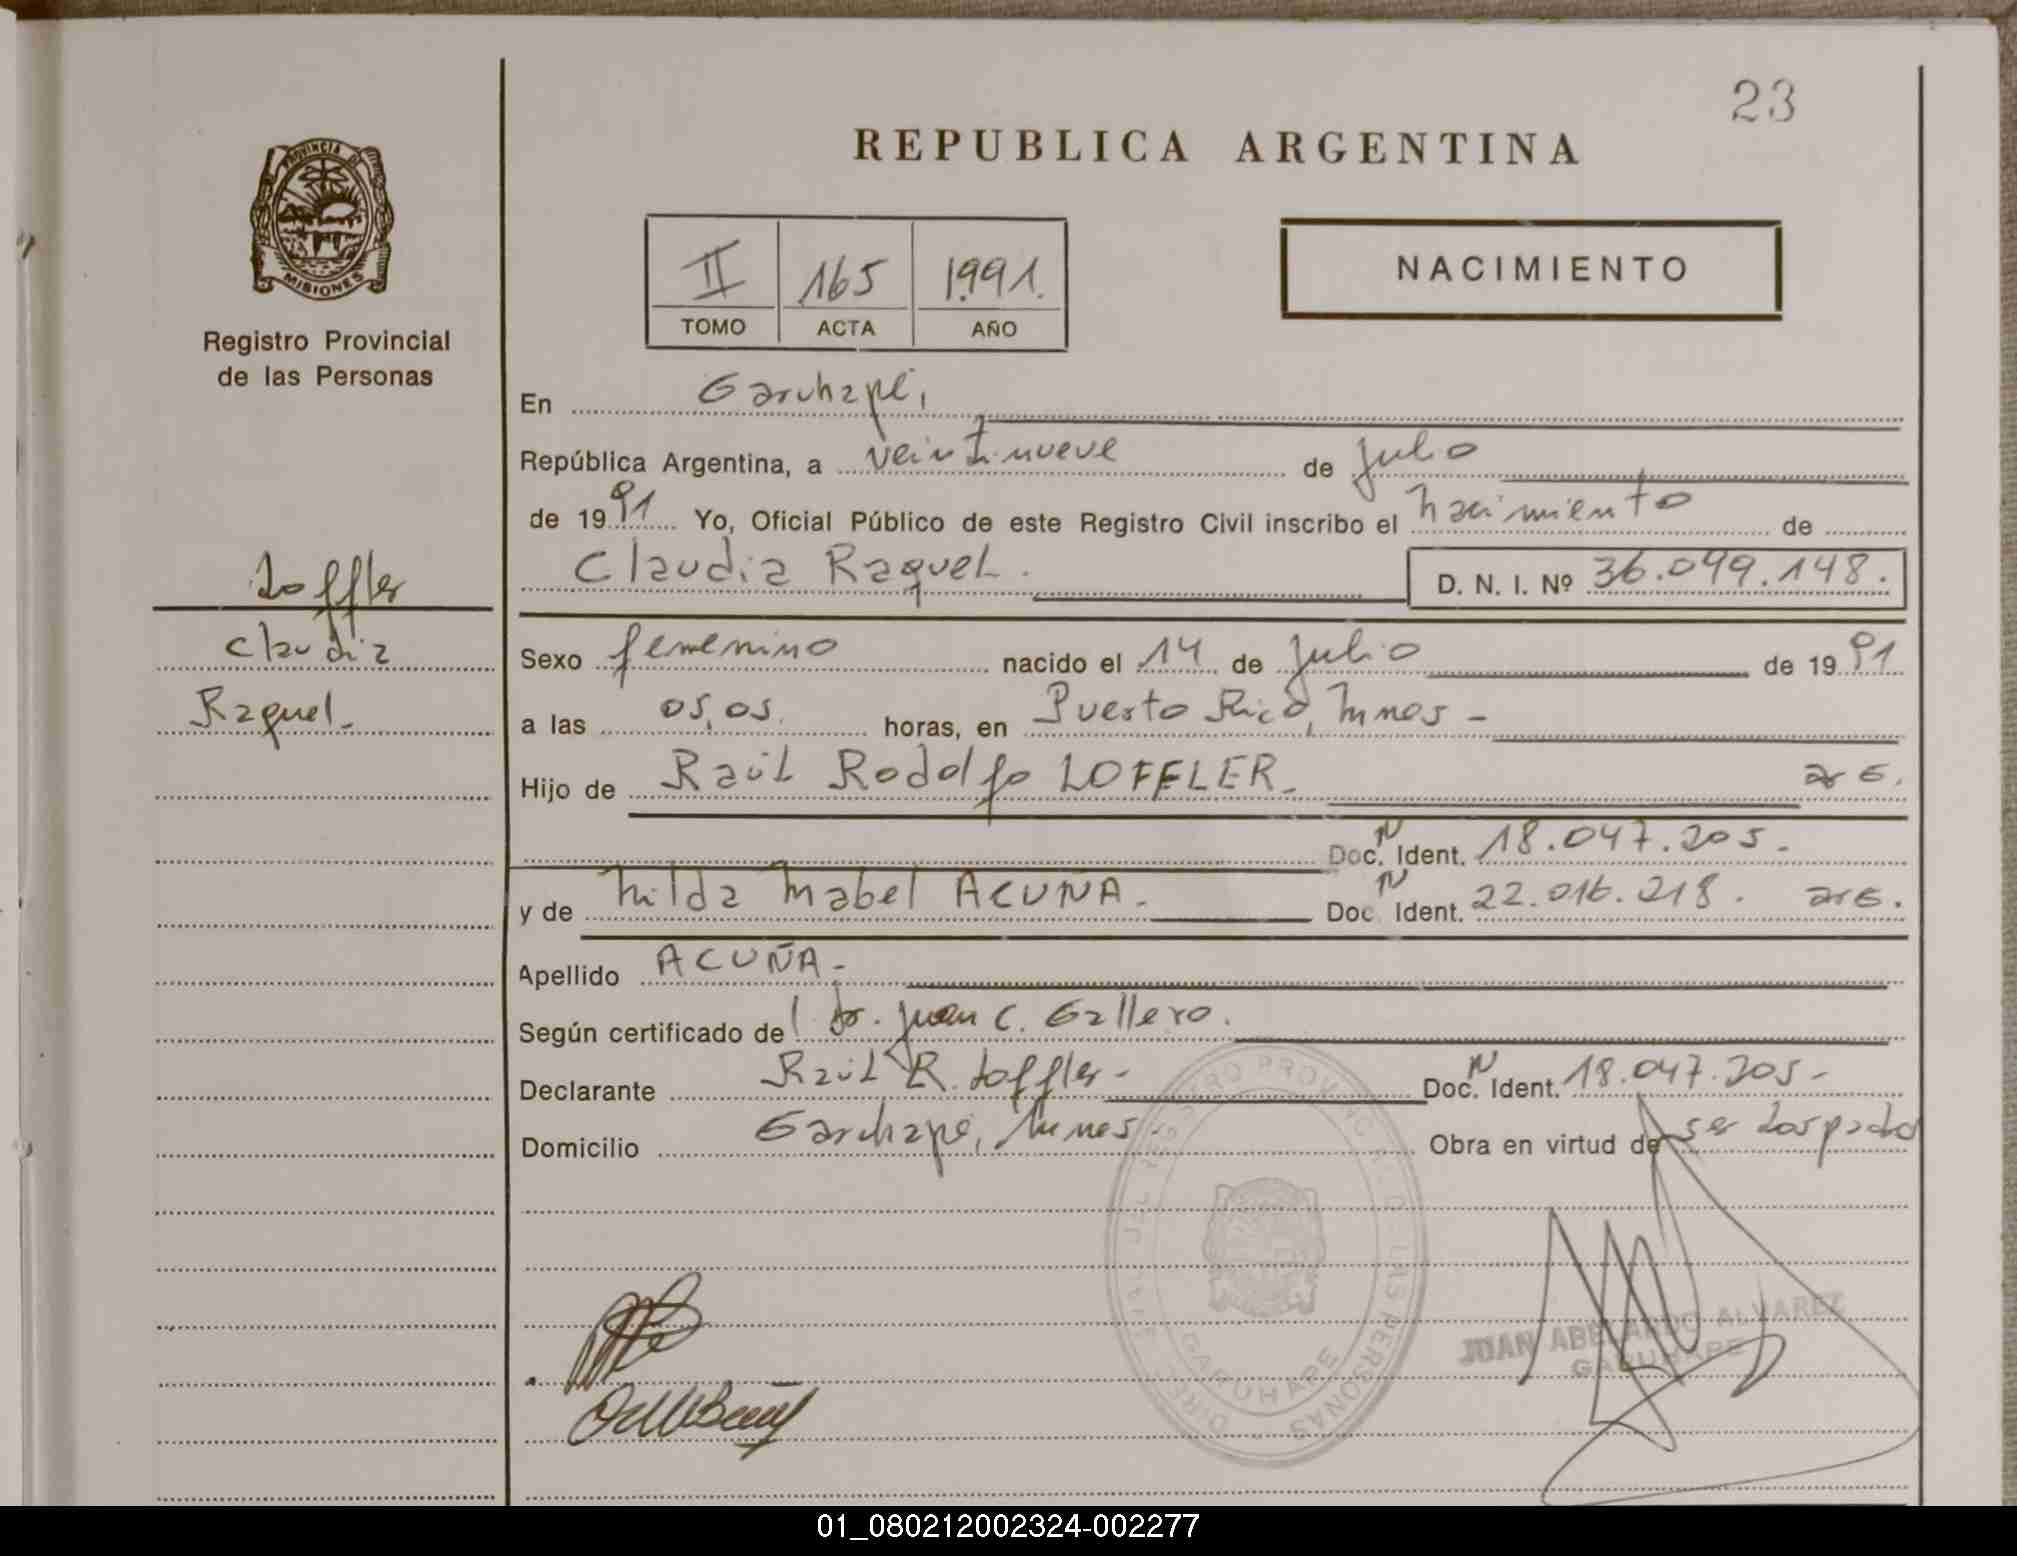 23
REPUBLICA ARGENTINA
PROVINCIA DE
MISIONES
Registro Provincial
de las Personas
II 165 1991.
TOMO ACTA AÑO
NACIMIENTO
En Garuhapé,
República Argentina, a veintinueve de julio
de 1991 Yo, Oficial Público de este Registro Civil inscribo el nacimiento de
Claudia Raquel. D. N. I. Nº 36.099.148.
Loffler
Claudia
Raquel.
Sexo femenino nacido el 14 de julio de 1991
a las 05,05. horas, en Puerto Rico, Mnes -
Hijo de Raúl Rodolfo LOFFLER. arg.
Doc. N Ident. 18.047.205.
y de Nilda Mabel ACUÑA. Doc N Ident. 22.016.218. arg.
Apellido ACUÑA-
Según certificado de Dr. Juan C. Gallero.
Declarante Raúl R. Loffler- Doc. N Ident. 18.047.205-
Domicilio Garuhapé, Mnes. Obra en virtud de ser los padres
REGISTRO PROVINCIAL DE LAS PERSONAS
GARUHAPE
JUAN ABELARDO ALVAREZ
GARUHAPE
01_080212002324-002277